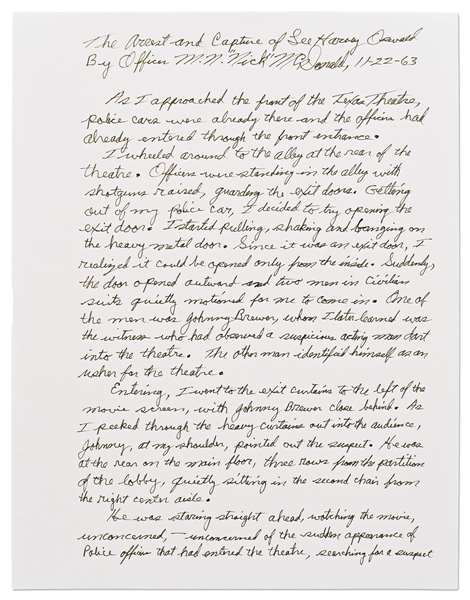 The Arrest and Capture of Lee Harvey Oswald
By Officer M.N. "Nick" McDonald, 11-22-63
As I approached the front of the Texas Theatre,
police cars were already there and the officers had
already entered through the front entrance.
I wheeled around to the alley at the rear of the
theatre. Officers were standing in the alley with
shotguns raised, guarding the exit doors. Getting
out of my Police car, I decided to try opening the
exit door. I started pulling, shaking and banging on
the heavy metal door. Since it was an exit door, I
realized it could be opened only from the inside. Suddenly,
the door opened outward and two men in Civilian
suits quietly motioned for me to come in. One of
the men was Johnny Brewer, whom I later learned was
the witness who had observed a suspicious acting man dart
into the theatre. The other man identified himself as an
usher for the theatre.
Entering, I went to the exit curtains to the left of the
movie screen, with Johnny Brewer close behind. As
I peeked through the heavy curtains out into the audience,
Johnny, at my shoulder, pointed out the suspect. He was
at the rear on the main floor, three rows from the partition
of the lobby, quietly sitting in the second chair from
the right center aisle.
He was staring straight ahead, watching the movie,
unconcerned, — unconcerned of the sudden appearance of
Police officers that had entered the theatre, searching for a suspect